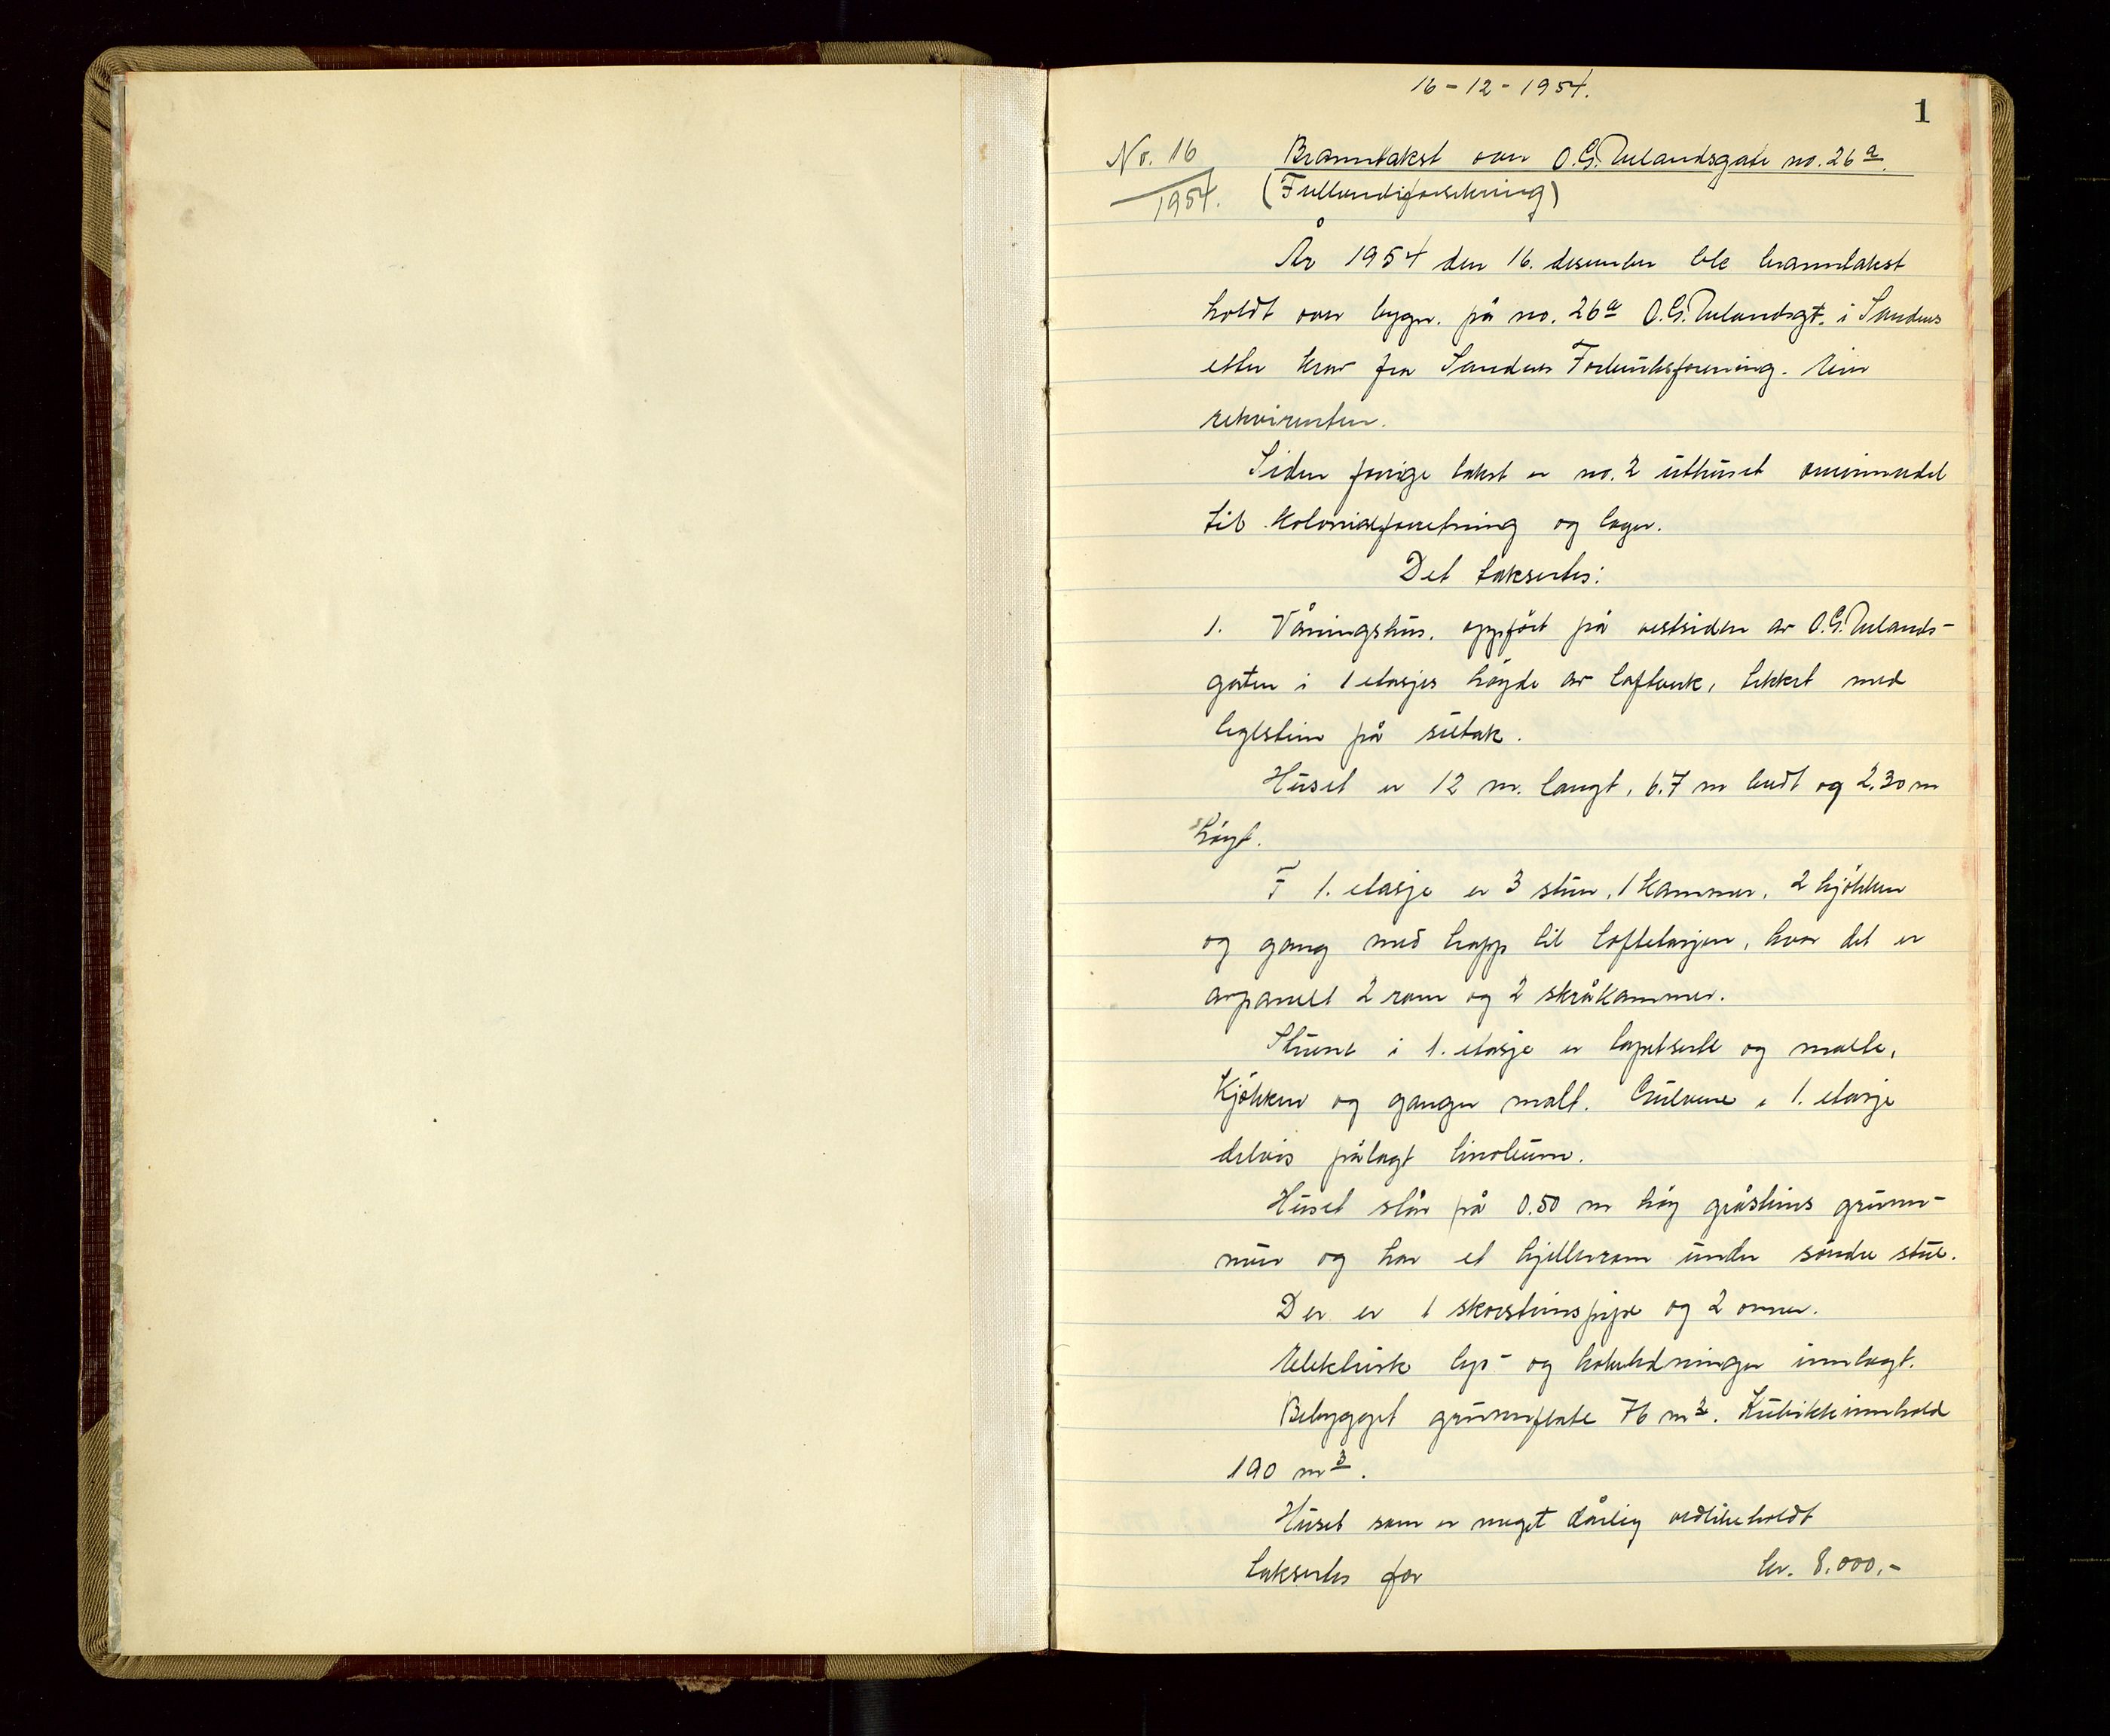 16-12-1954.
1
No. 16
1954.
Branntakst over O.G. Uelandsgate no. 26 a.
(Fullverdiforsikring)
År 1954 den 16. desember ble branntakst
holdt over bygn. på no. 26 a O.G. Uelandsgt. i Sandnes
etter krav fra Sandnes Forbruksforening. Eier
rekvirenten.
Siden forrige takst er no. 2 uthuset ominnredet
til kolonialforretning og lager.
Det taksertes:
1. Våningshus, oppført på vestsiden av O.G. Uelands-
gaten i 1 etasjes høyde av lafteverk, tekket med
teglstein på sutak.
Huset er 12 m. langt, 6.7 m bredt og 2.30 m
høyt.
I 1. etasje er 3 stuer, 1 kammer, 2 kjøkken
og gang med trapp til loftetasjen, hvor det er
avpanelt 2 rom og 2 skråkammer.
Stuene i 1. etasje er tapetserte og malte,
kjøkken og ganger malt. Gulvene i 1. etasje
delvis pålagt linoleum.
Huset står på 0.50 m høy gråsteins grunn-
mur og har et kjellerrom under søndre stue.
Der er 1 skorsteinspipe og 2 ovner.
Elektrisk lys- og kokeledninger innlagt.
Bebygget grunnflate 76 m2. Kubikkinnhold
190 m3.
Huset som er meget dårlig vedlikeholdt
taksertes for kr. 8.000,-